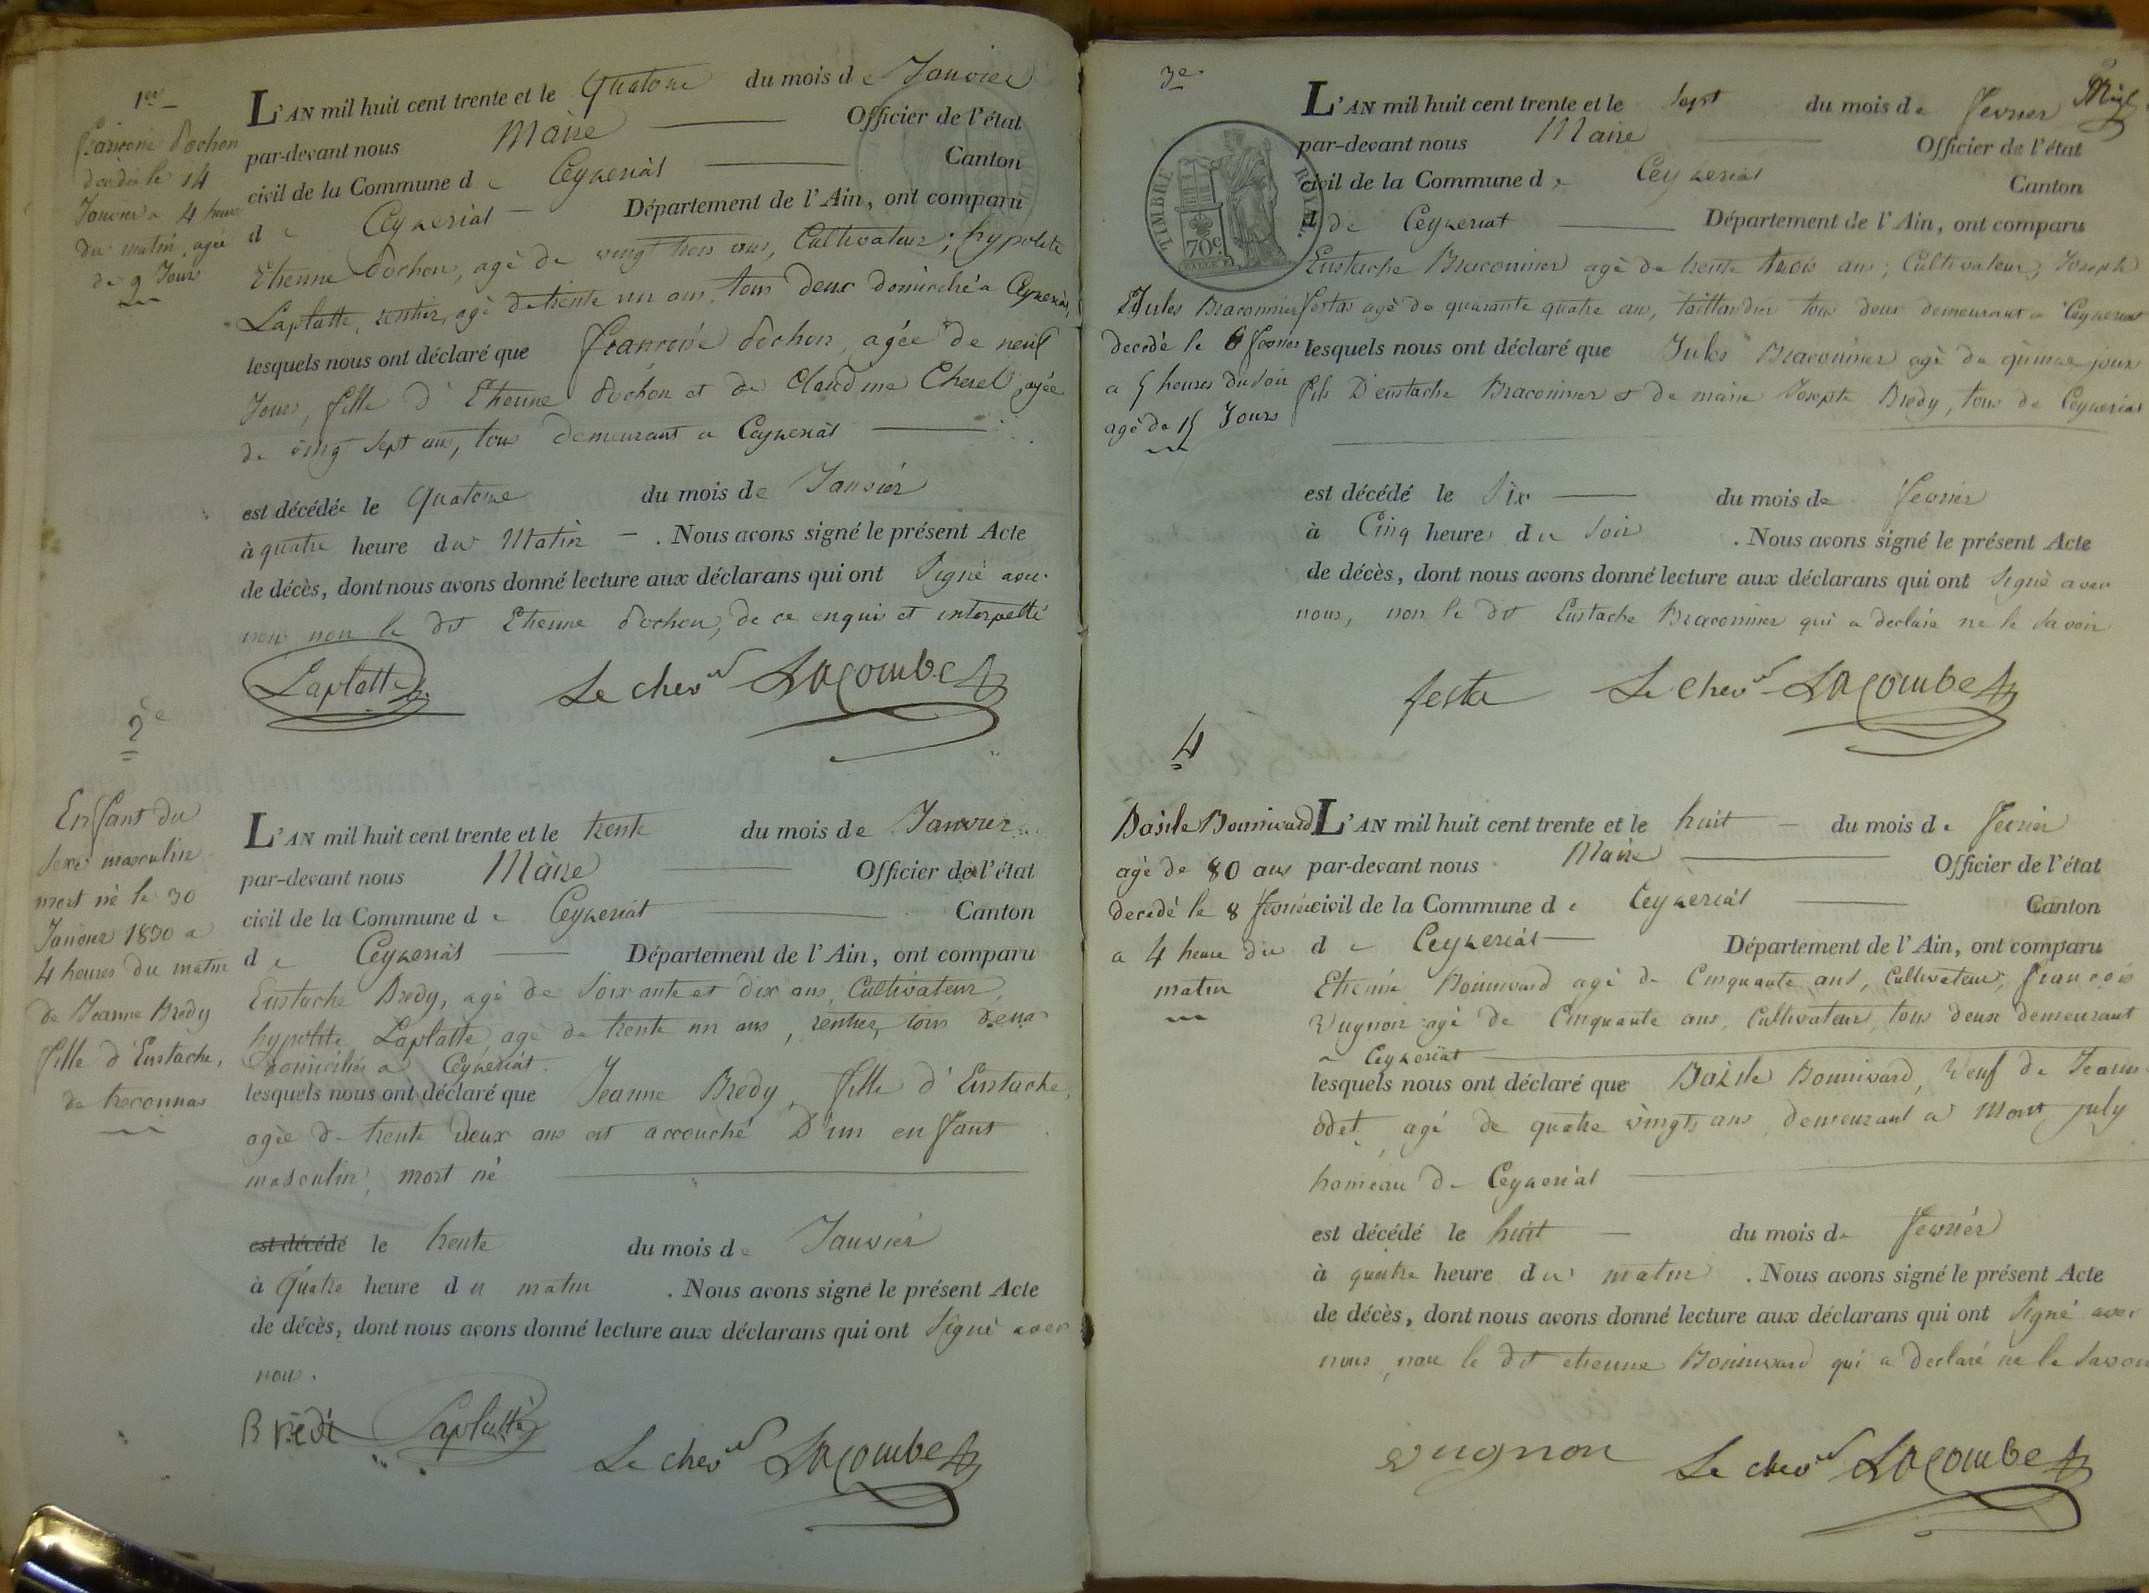 1er
L'AN mil huit cent trente et le quatorze du mois de Janvier
par-devant nous Maire Officier de l'état
civil de la Commune de Ceyzeriat Canton
de Ceyzeriat Département de l'Ain, ont comparu
Etienne Dochon, agé de vingt trois ans, Cultivateur; hypolite
Laplatte, rentier, agé de trente un ans, tous deux domicilié a Ceyzeriat,
lesquels nous ont déclaré que francoise Dochon, agée de neuf
Jours, fille d'Etienne Dochon et de Claudine Chevel, agée
de vingt sept ans, tous demeurant a Ceyzeriat
est décédée le quatorze du mois de Janvier
à quatre heure du Matin. Nous avons signé le présent Acte
de décès, dont nous avons donné lecture aux déclarans qui ont Signé avec
nous non le dit Etienne Dochon, de ce enquis et interpellé
Laplatte Le chevr LACOMBE
francoise Dochon
décédée le 14
Janvier a 4 heures
du matin, agée
de 9 Jours
2e
Enfant du
sexe masculin
mort né le 30
Janvier 1830 a
4 heures du matin
de Jeanne Bredy
fille d'Eustache,
de treconnas
L'AN mil huit cent trente et le trente du mois de Janvier
par-devant nous Maire Officier de l'état
civil de la Commune de Ceyzeriat Canton
de Ceyzeriat Département de l'Ain, ont comparu
Eustache Bredy, agé de soixante et dix ans, Cultivateur,
hypolite Laplatte, agé de trente un ans, rentier, tous deux
domiciliés a Ceyzeriat.
lesquels nous ont déclaré que Jeanne Bredy, fille d'Eustache,
agée de trente deux ans est accouché D'un enfant
masculin, mort né
est décédé le trente du mois de Janvier
à quatre heure du matin. Nous avons signé le présent Acte
de décès, dont nous avons donné lecture aux déclarans qui ont Signé avec
nous.
Bredi Laplatte Le chevr LACOMBE
3e
L'AN mil huit cent trente et le sept du mois de fevrier
par-devant nous Maire Officier de l'état
civil de la Commune de Ceyzeriat Canton
d de Ceyzeriat Département de l'Ain, ont comparu
Eustache Braconnier agé de trente trois ans, Cultivateur, Joseph
festas agé de quarante quatre ans, taillandier tous deux demeurant a Ceyzeriat
lesquels nous ont déclaré que Jules Braconnier agé de quinze jours
fils D'eustache Braconnier et de marie Josepte Bredy, tous de Ceyzeriat
est décédé le Six du mois de fevrier
à Cinq heures du Soir. Nous avons signé le présent Acte
de décès, dont nous avons donné lecture aux déclarans qui ont Signé avec
nous, non le dit Eustache Braconnier qui a declaré ne le savoir
festa Le chevr LACOMBE
TIMBRE ROYAL
70c
Jules Braconnier
decédé le 6 fevrier
a 5 heures du soir
agé de 15 Jours
4
Basile Bonnivard
agé de 80 ans
decedé le 8 fevrier
a 4 heure du
matin
L'AN mil huit cent trente et le huit du mois de fevrier
par-devant nous Maire Officier de l'état
civil de la Commune de Ceyzeriat Canton
de Ceyzeriat Département de l'Ain, ont comparu
Etienne Bonnivard agé de Cinquante ans, Cultivateur, françois
Vugnon agé de Cinquante ans, Cultivateur, tous deux demeurant
a Ceyzeriat
lesquels nous ont déclaré que Basile Bonnivard, Veuf de Jeanne
odet, agé de quatre vingts ans, demeurant a Mont july
hameau de Ceyzeriat
est décédé le huit du mois de fevrier
à quatre heure du matin. Nous avons signé le présent Acte
de décès, dont nous avons donné lecture aux déclarans qui ont Signé avec
nous, non le dit etienne Bonnivard qui a declaré ne le savoir
vugnon Le chevr LACOMBE